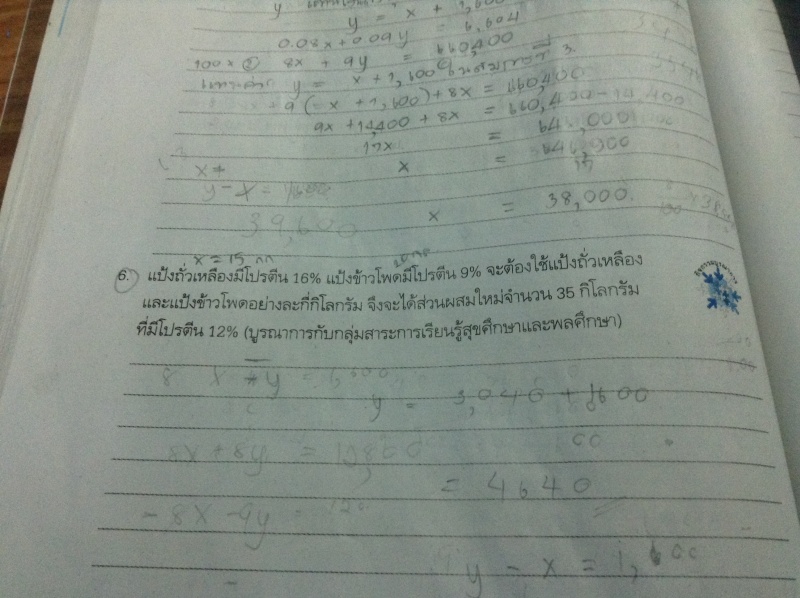 y = x + 1,600
0.08x + 0.09y = 6,604
100 x ② 8x + 9y = 660,400
y = x + 1,600 3.
9 ( x + 1,600) + 8x = 660,400
9x + 14,400 + 8x = 660,400 - 14,400
17x = 646,000
x = 646,000
17
y - x = 1600
x = 38,000
39,600
x = 15 กก
6. แป้งถั่วเหลืองมีโปรตีน 16% แป้งข้าวโพดมีโปรตีน 9% จะต้องใช้แป้งถั่วเหลือง
และแป้งข้าวโพดอย่างละกี่กิโลกรัม จึงจะได้ส่วนผสมใหม่จำนวน 35 กิโลกรัม
ที่มีโปรตีน 12% (บูรณาการกับกลุ่มสาระการเรียนรู้สุขศึกษาและพลศึกษา)
y = 3,040 + 1600
8x + 8y =
= 4640
- 8x - 9y =
y - x = 1,600